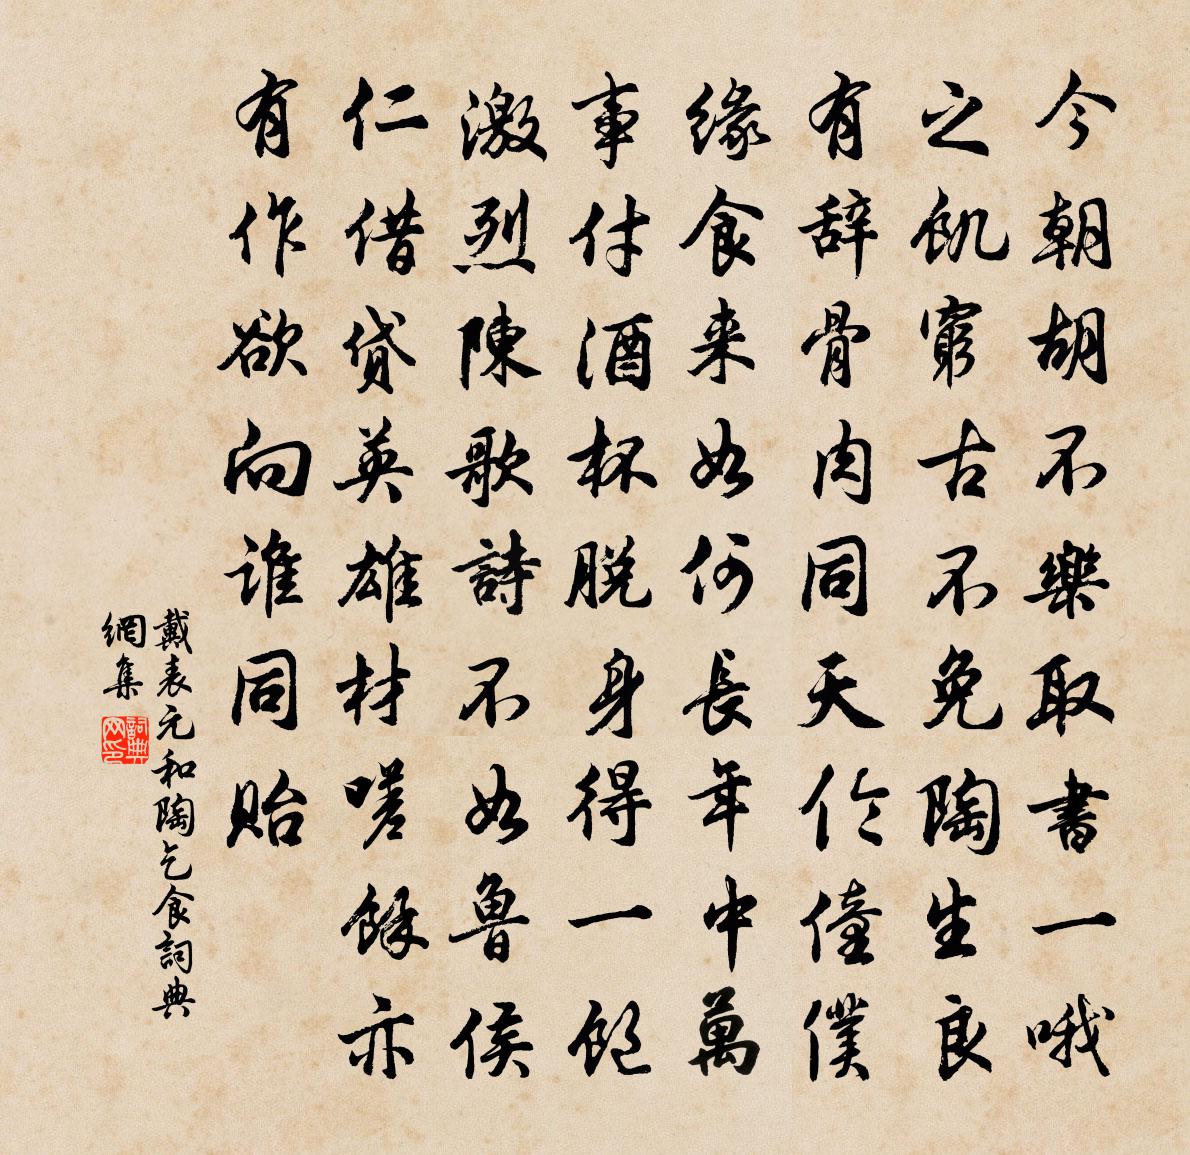 今朝胡不樂取書一哦
之飢窮古不免陶生良
有辞骨肉同天伦僮僕
緣食来如何長年中萬
事付酒杯脫身得一飽
激烈陳歌詩不如魯侯
仁借貸英雄材嗟餘亦
有作欲向誰同貽
戴表元和陶乞食詞典
網集
詞典網印